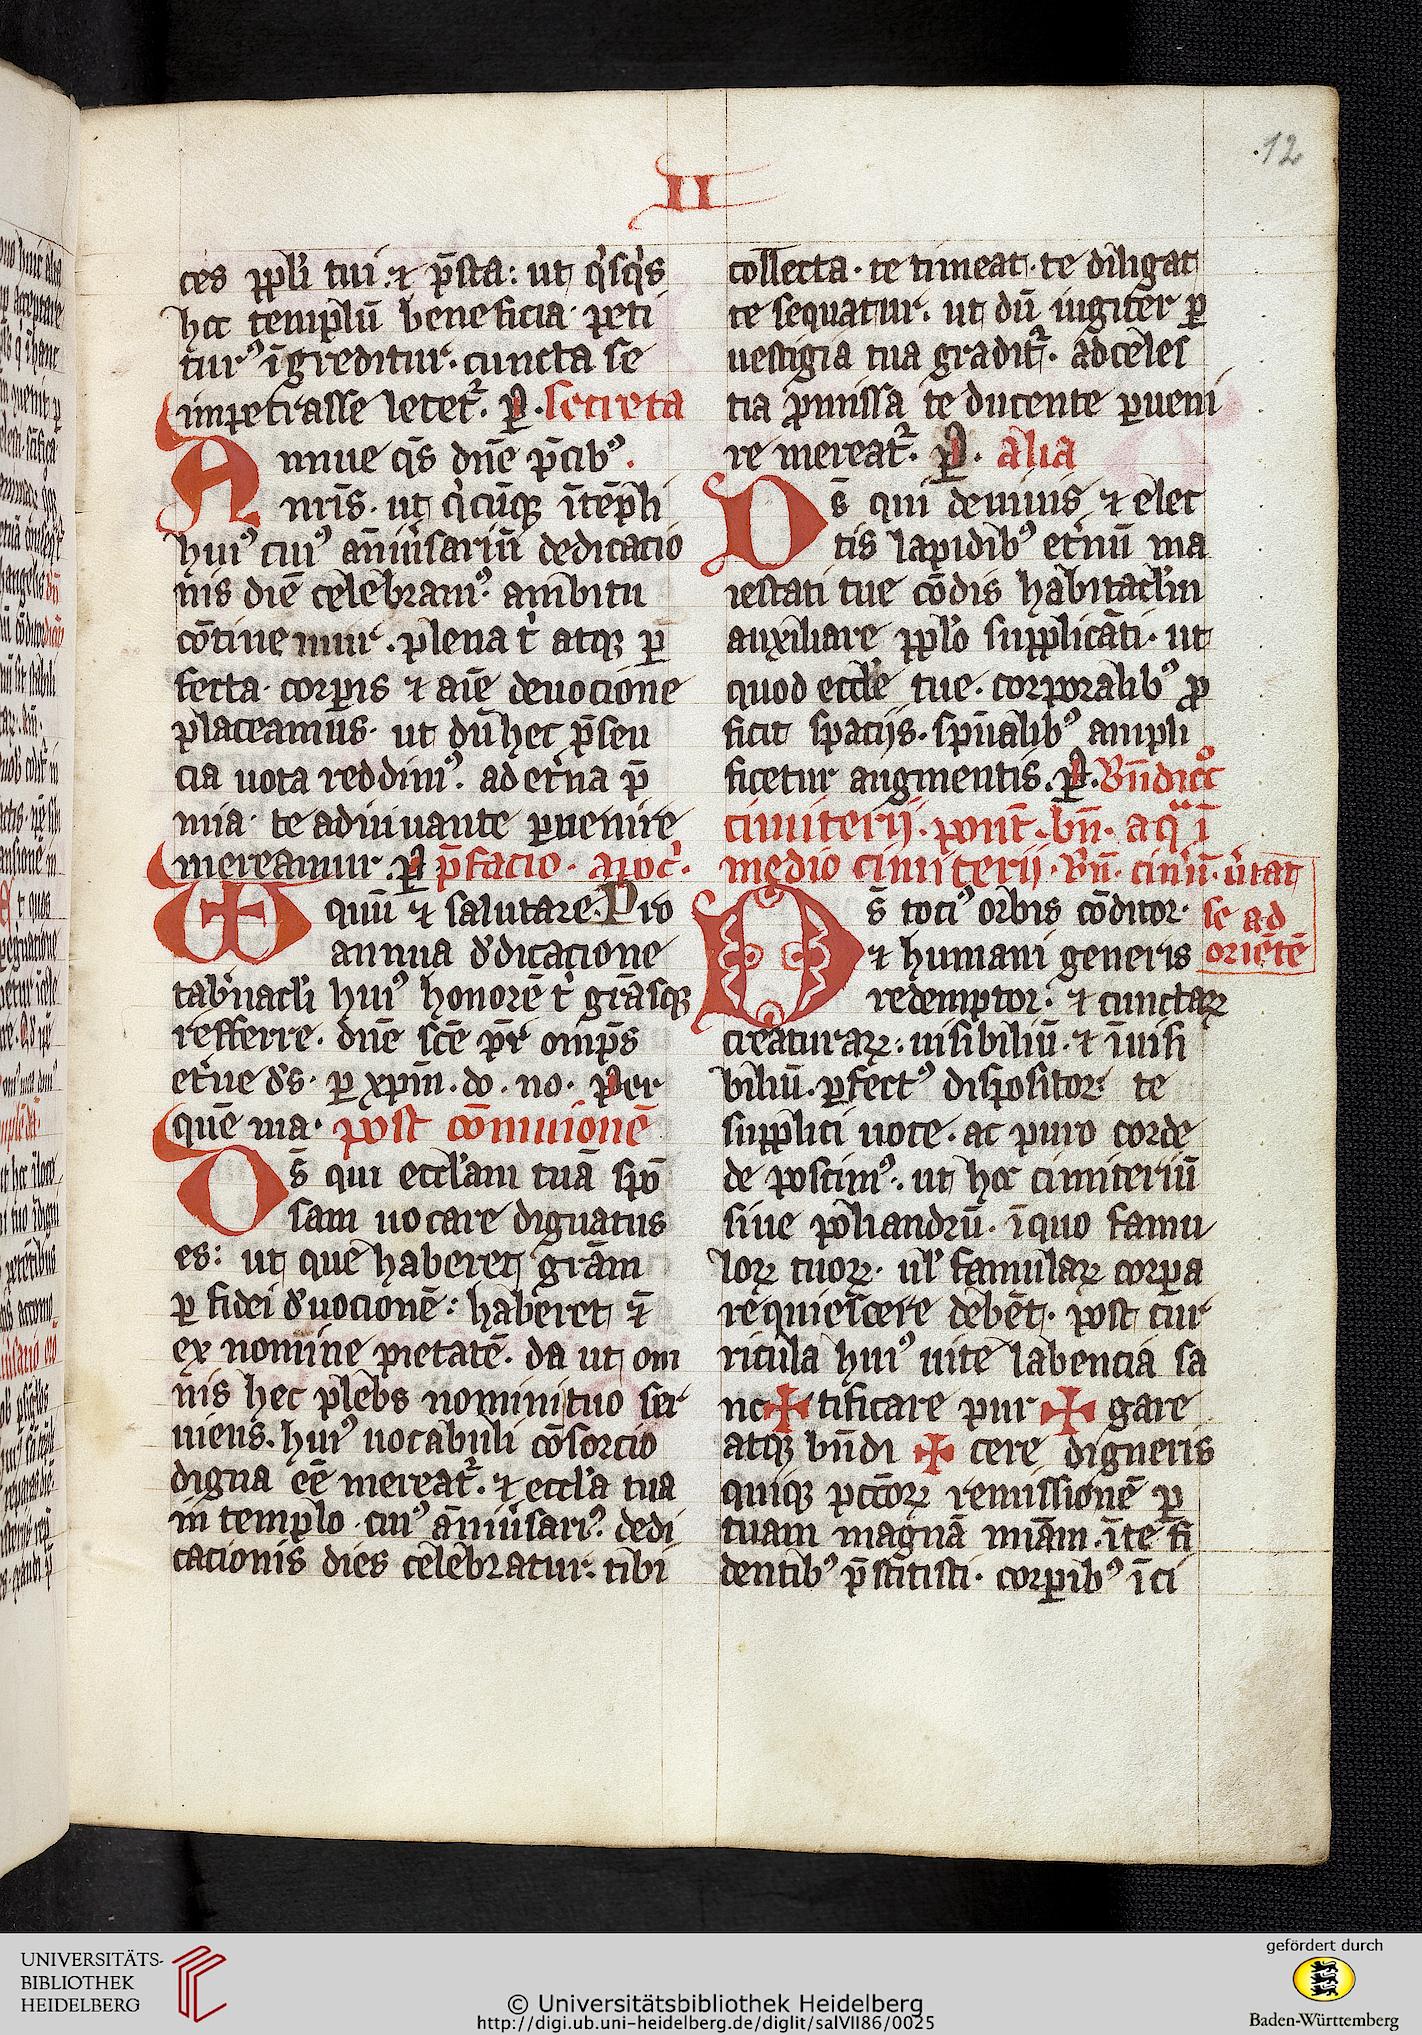 II
.12
ces ppli tui. ⁊ p̄sta: ut q̇sq̇s
hec templū beneficia peti
turꝰ īgreditur. cuncta se
impetrasse letet᷑. ꝑ. secreta
Annue q̄s dn̄e p̄cibꝰ.
nr̄is. ut q̇cūqꝫ ītēpli
huiꝰ cuiꝰ an̄iūsariū dedicatio
nis diē celebramꝰ ambitu
cōtinemur. plena t̉ atqꝫ ꝑ
fecta corꝑis ⁊ aīe deuocione
placeamus. ut dū hec p̄sen
cia uota reddimꝰ. ad et̉na p̄
mia te adiuuante ꝑuenire
mereamur. ꝑ p̄facio.
equū ⁊ salutare. Pro
annua d̉dicacione
tab̉nacl̉i huiꝰ honorē t̉ gr̄asqꝫ
refferre. dn̄e sc̄e pr̄ omp̄s
et̉ne d̉s. ꝑ xp̄m. do. no. Per
quē ma. post cōmuionē
Ds̄ qui eccl̉am tuā spō
sam uocare dignatus
es: ut que haberet grām
ꝑ fidei d̉uocionē: haberet ⁊̄
ex nomine pietatē. da ut om
nis hec plebs nomini tuo ser
uiens. huiꝰ uocabuli cōsorcio
digna eē mereat᷑. ⁊ eccl̉a tua
in templo cuiꝰ an̄iūsariꝰ dedi
cacionis dies celebratur. tibi
collecta. te timeat. te diligat
te sequatur. ut dū iugiter ꝑ
uestigia tua gradit᷑. ad celes
tia ꝓmissa te ducente ꝑueni
re mereat᷑. ꝑ. alia
Ds̄ qui de uiuis ⁊ elec
tis lapidibꝰ et̉nū ma
iestati tue cōdis habitacl̉m
auxiliare ppl̉o supplicāti. ut
quod eccl̉e tue. corporalibꝰ ꝓ
ficit spacijs. spūalibꝰ ampli
ficetur augmentis. ꝑ. Bn̄dicc̄o
cimiterij. pont̄. bn̄. aq̄ ī
medio cimiterij. Bn̄. cimī. ūtat
se ad
oriētē
Ds̄ tociꝰ orbis cōditor.
⁊ humani generis
redemptor. ⁊ cunctaꝝ
creaturaꝝ. uisibiliū. ⁊ īuisi
biliū. ꝑfectꝰ dispositor. te
supplici uoce. ac puro corde
de poscimꝰ. ut hoc cimiteriū
siue poliandrū. ī quo famu
loꝝ tuoꝝ. ul̉ famulaꝝ corꝑa
requiescere debēt. post cur
ricula huiꝰ uite labencia sa
nc ✠ tificare pur ✠ gare
atqꝫ bn̄di ✠ cere digneris
quiqꝫ pcc̄oꝝ remissionē ꝑ
tuam magnā mīam. ī te fi
dentibꝰ p̄stitisti. corꝑibꝰ ī ci
UNIVERSITÄTS-
BIBLIOTHEK
HEIDELBERG
© Universitätsbibliothek Heidelberg
http://digi.ub.uni-heidelberg.de/diglit/salVII86/0025
gefördert durch
Baden-Württemberg